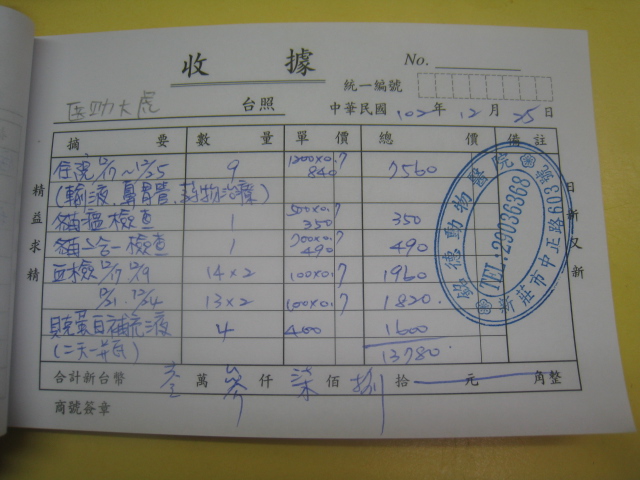 收據
No.
統一編號
医助大虎 台照 中華民國 102 年 12 月 25 日
摘要 數量 單價 總價 備註
住院 12/17～12/25 9 1200×0.7 840 7560
(輸液、鼻胃管、藥物治療)
貓瘟檢查 1 500×0.7 350 350
貓二合一檢查 1 700×0.7 490 490
血檢 12/17 12/19 14×2 100×0.7 1960
12/21. 12/24 13×2 100×0.7 1820.
蛋白補充液 4 400 1600
(二天一瓶) 13780.
合計新台幣 壹 萬 參 仟 柒 佰 捌 拾 元 角整
商號簽章
精益求精
日新又新
德動物醫院
TEL:29036368
新莊市中正路603號